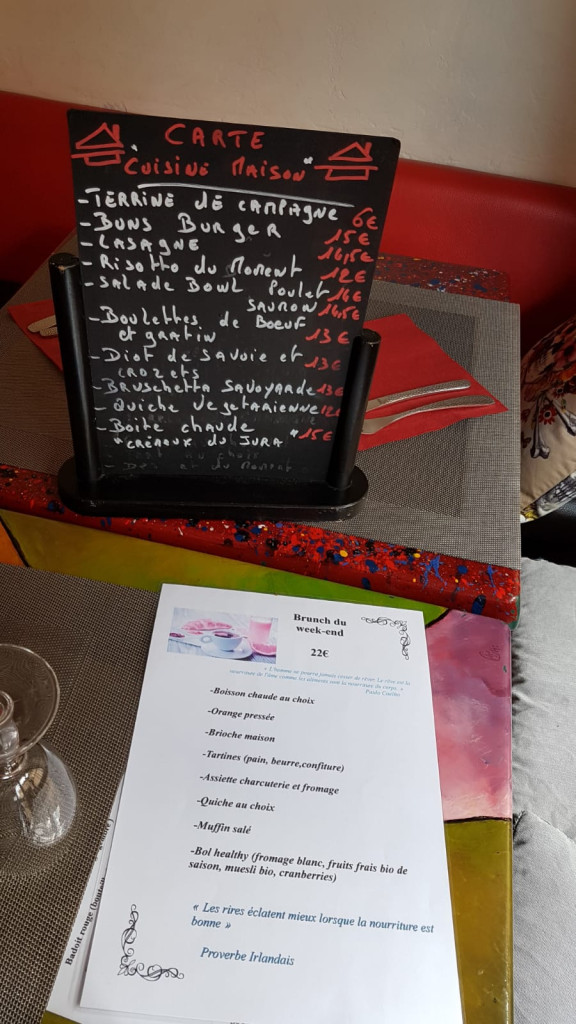 CARTE
"CUISINE MAISON"
- TERRINE DE CAMPAGNE 6€
- BUNS BURGER 15€
- LASAGNE 14,5€
- RISOTTO DU MOMENT 12€
- SALADE BOWL POULET 14€
SAUMON 14,5€
- BOULETTES DE BOEUF
et gratin 13€
- DIOT DE SAVOIE et
CROZETS 13€
- BRUSCHETTA SAVOYARDE 13€
- QUICHE VEGETARIENNE 12€
- BOITE CHAUDE
"CRÉMAUX DU JURA" 15€
Brunch du
week-end
22€
« L'homme ne pourra jamais cesser de rêver. Le rêve est la
nourriture de l'âme comme les aliments sont la nourriture du corps. »
Paulo Coelho
-Boisson chaude au choix
-Orange pressée
-Brioche maison
-Tartines (pain, beurre,confiture)
-Assiette charcuterie et fromage
-Quiche au choix
-Muffin salé
-Bol healthy (fromage blanc, fruits frais bio de
saison, muesli bio, cranberries)
« Les rires éclatent mieux lorsque la nourriture est
bonne »
Proverbe Irlandais
Badoit rouge